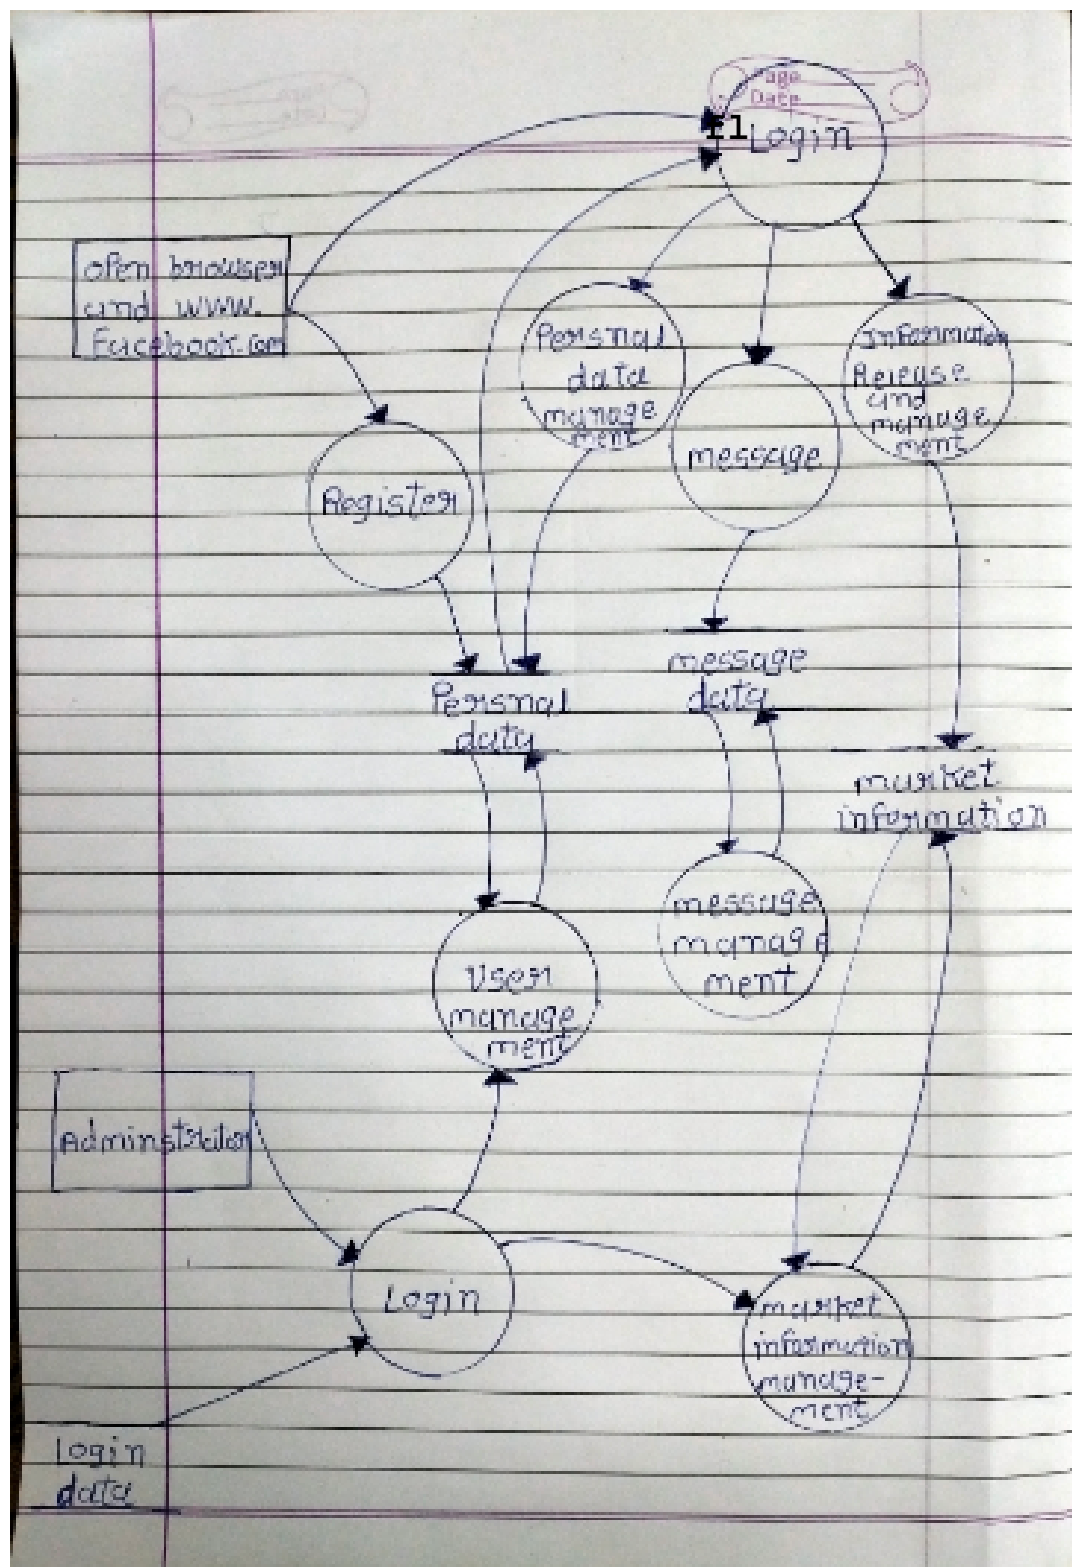 Page
Date
11
Login
open browser
and www.
facebook.com
Persnal
data
manage
ment
Information
Release
and
manage
ment
message
Register
message
data
Persnal
data
market
information
message
manage
ment
User
manage
ment
Adminstrator
Login
market
information
manage-
ment
Login
data